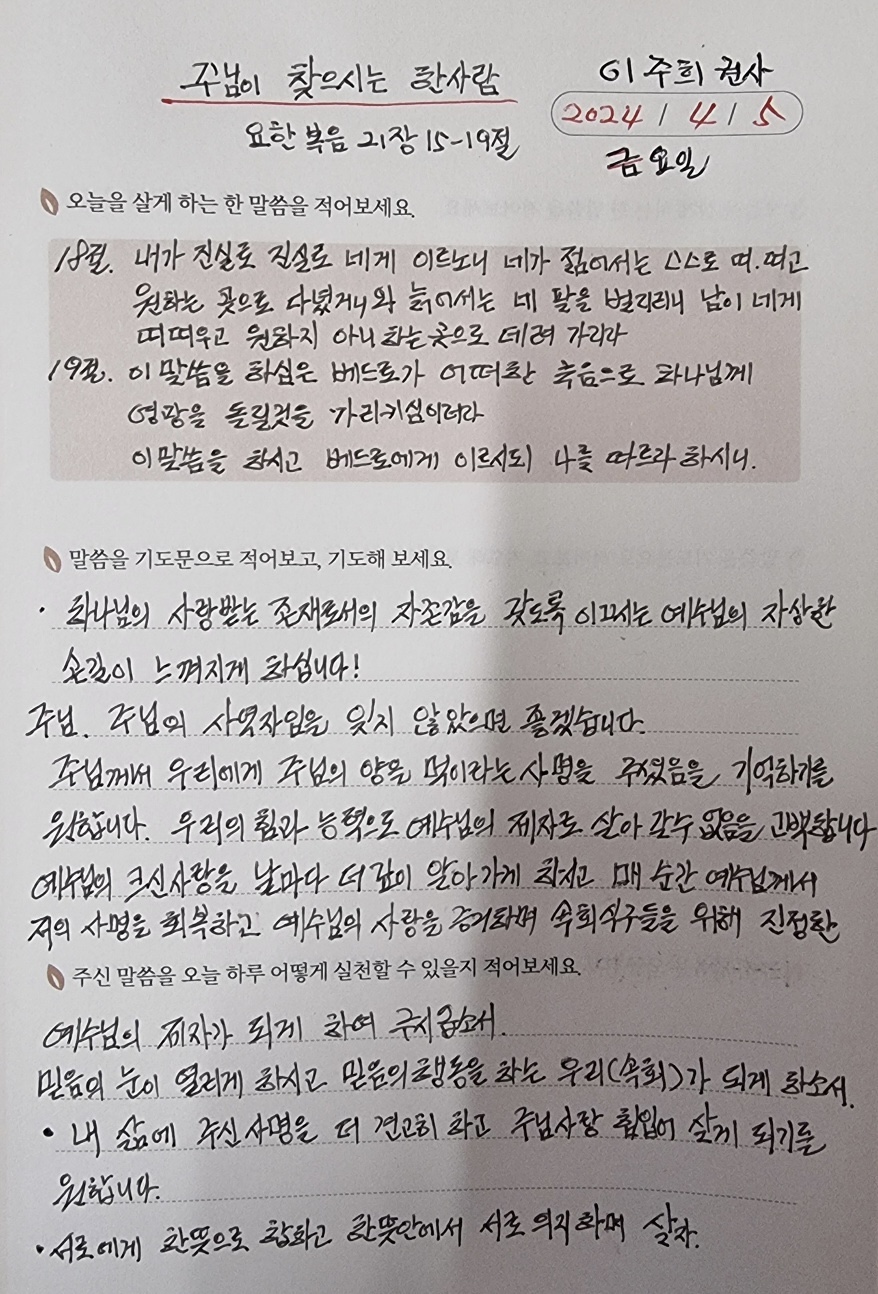 주님이 찾으시는 한사람
이주희 권사
2024 / 4 / 5
요한복음 21장 15-19절
금요일
오늘을 살게 하는 한 말씀을 적어보세요.
18절. 내가 진실로 진실로 네게 이르노니 네가 젊어서는 스스로 띠.띠고
원하는 곳으로 다녔거니와 늙어서는 네 팔을 벌리리니 남이 네게
띠띠우고 원하지 아니하는곳으로 데려 가리라
19절. 이 말씀을 하심은 베드로가 어떠한 죽음으로 하나님께
영광을 돌릴것을 가리키심이더라
이말씀을 하시고 베드로에게 이르시되 나를 따르라 하시니.
말씀을 기도문으로 적어보고, 기도해 보세요.
• 하나님의 사랑받는 존재로서의 자존감을 갖도록 이끄시는 예수님의 자상한
손길이 느껴지게 하십니다!
주님. 주님의 사역자임을 잊지 않았으면 좋겠습니다.
주님께서 우리에게 주님의 양을 먹이라는 사명을 주셨음을 기억하기를
원합니다. 우리의 힘과 능력으로 예수님의 제자로 살아 갈수 없음을 고백합니다
예수님의 크신사랑을 날마다 더 깊이 알아가게 하시고 매 순간 예수님께서
저의 사명을 회복하고 예수님의 사랑을 증거하며 속회식구들을 위해 진정한
주신 말씀을 오늘 하루 어떻게 실천할 수 있을지 적어보세요.
예수님의 제자가 되게 하여 주시옵소서.
믿음의 눈이 열리게 하시고 믿음의행동을 하는 우리(속회)가 되게 하소서.
• 내 삶에 주신사명을 더 견고히 하고 주님사랑 힘입어 살게 되기를
원합니다.
• 서로에게 한뜻으로 합하고 한뜻안에서 서로 의지하며 살자.